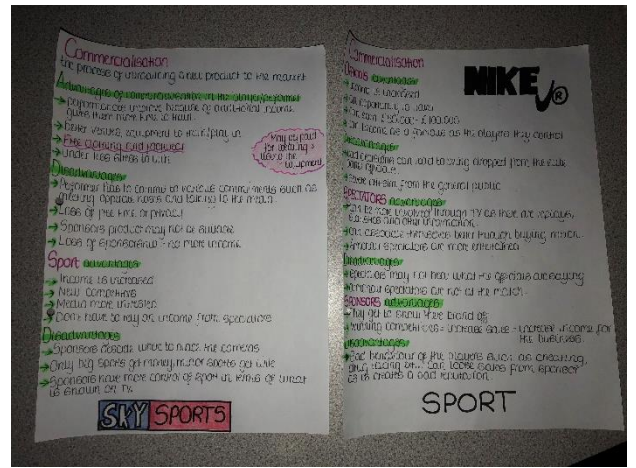 Commercialisation
the process of introducing a new product to the market
Advantages of commercialisation to the player/performer
→ performances improve because of additional income
gives them more time to train.
→ better venues, equipment to train/play in
→ Free clothing and footwear
→ under less stress to win
May get paid
for wearing +
using the
equipment
Disadvantages
→ Performer has to commit to various commitments such as
making appearances and talking to the media.
→ Loss of free time or privacy
→ Sponsors product may not be suitable
→ Loss of sponsorship - no more income
Sport advantages
→ Income is increased
→ New competitions
→ Media more interested
→ Don't have to rely on income from spectators
Disadvantages
→ Sponsors decide when to have the
→ Only big sports get money, minor sports get little
→ Sponsors have more control of sport in terms of what
is shown on TV.
SKY SPORTS
Commercialisation
Officials advantages
→ Income is increased
→
→ can earn £50,000 - £100,000
→ can become as famous as the players they control
Disadvantages
→ Bad officiating can lead to being dropped from the elite
→ More criticism from the general public
SPECTATORS advantages
→ Can be more involved through TV as there are replays,
and other information
→ Can associate themselves better through buying merch.
→ Armchair spectators are more entertained
Disadvantages
→ Spectators may not hear what the officials are saying
→ Armchair spectators are not at the match
SPONSORS advantages
→ They get to show their brand off
→ competitions = increase sales - increase income for
the business.
Disadvantages
→ Bad behaviour of the players such as cheating,
drug taking etc... can loose sales from sponsor
as it creates a bad reputation.
NIKE ®
SPORT